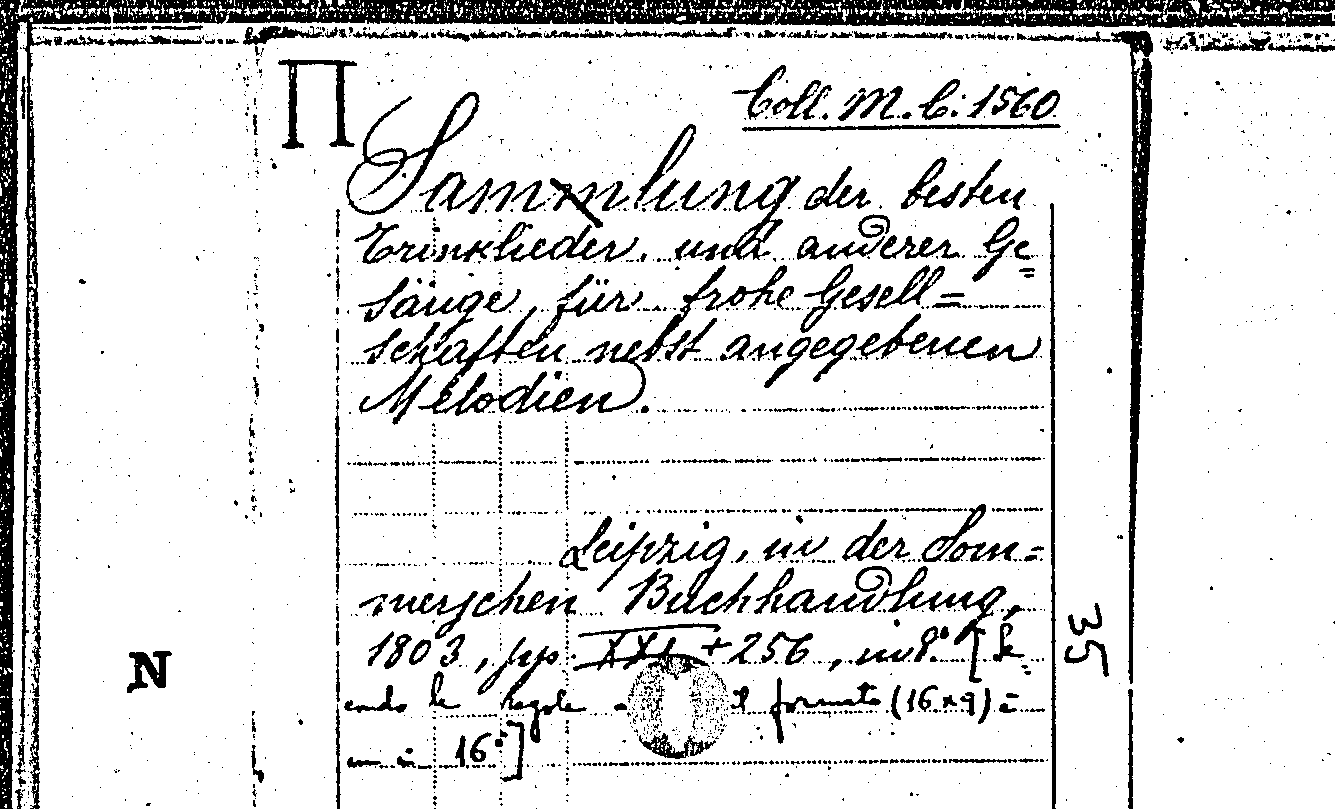 Π
Coll. M. C. 1560
Sammlung der besten
Trinklieder und anderer Ge=
sänge, für frohe Gesell=
schaften nebst angegebenen
Melodien.
Leipzig, in der Som=
merschen Buchhandlung,
1803, pp. XXI + 256, in 8.° [Se=
condo le regole il formato (16x9) è
un in 16°]
35
N